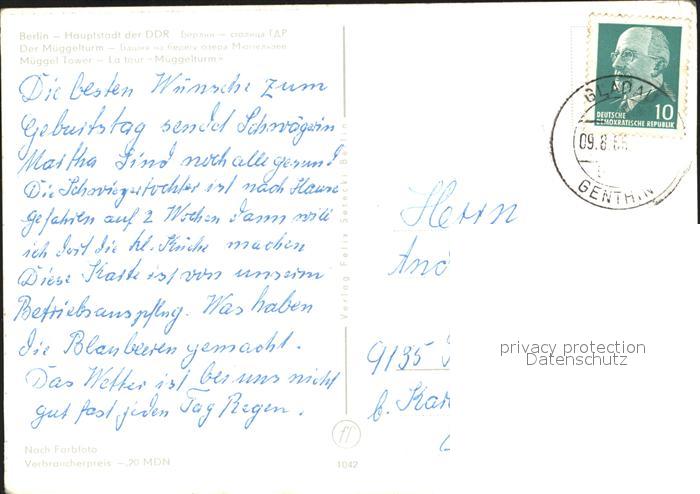 Berlin – Hauptstadt der DDR Берлин – столица ГДР
Der Müggelturm – Башня на берегу озера Мюггельзее
Müggel Tower – La tour «Müggelturm»
Die besten Wünsche zum
Geburtstag sendet Schwägerin
Martha Sind noch alle gesund
Die Schwiegertochter ist nach Hause
gefahren auf 2 Wochen dann will
ich dort die kl. Küche machen
Diese Karte ist von unserm
Betriebsauspflug. Was haben
die Blaubeeren gemacht.
Das Wetter ist bei uns nicht
gut fast jeden Tag Regen.
Nach Farbfoto
Verbraucherpreis –,20 MDN
Verlag Felix Setecki Berlin
1042
DEUTSCHE
DEMOKRATISCHE REPUBLIK
10
09.8.
GENTHIN
Herrn
And
9135
b. Kar
privacy protection
Datenschutz